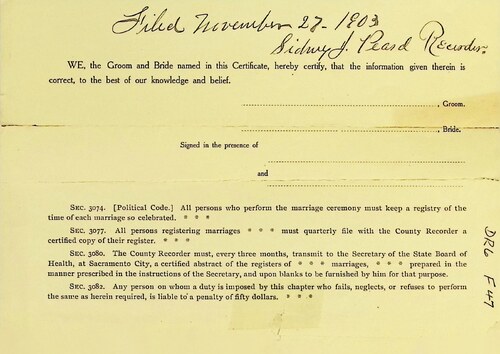 Filed November 27 - 1903
Sidney J. Peard Recorder.
WE, the Groom and Bride named in this Certificate, hereby certify, that the information given therein is
correct, to the best of our knowledge and belief.
, Groom.
, Bride.
Signed in the presence of
and
SEC. 3074. [Political Code.] All persons who perform the marriage ceremony must keep a registry of the
time of each marriage so celebrated. * * *
SEC. 3077. All persons registering marriages * * * must quarterly file with the County Recorder a
certified copy of their register. * * *
SEC. 3080. The County Recorder must, every three months, transmit to the Secretary of the State Board of
Health, at Sacramento City, a certified abstract of the registers of * * * marriages, * * * prepared in the
manner prescribed in the instructions of the Secretary, and upon blanks to be furnished by him for that purpose.
SEC. 3082. Any person on whom a duty is imposed by this chapter who fails, neglects, or refuses to perform
the same as herein required, is liable to a penalty of fifty dollars. * * *
DR6 F47